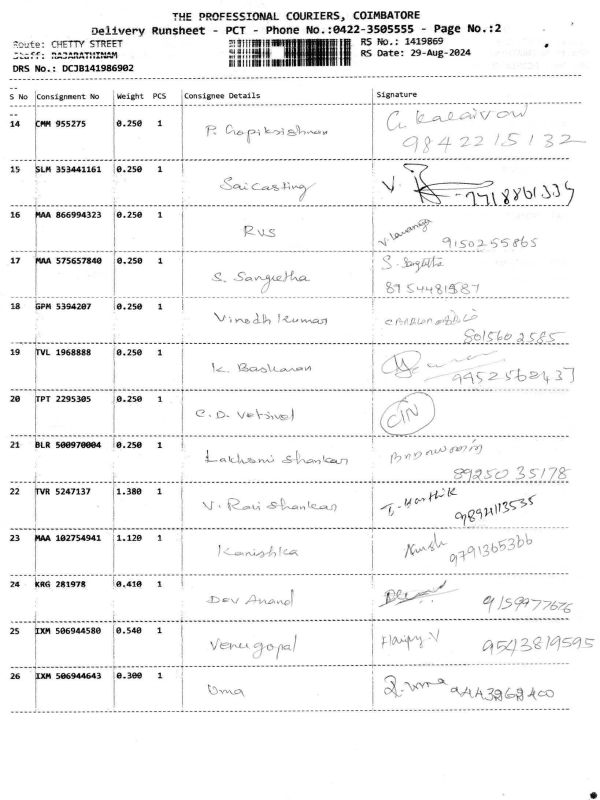 THE PROFESSIONAL COURIERS, COIMBATORE
Delivery Runsheet - PCT - Phone No.:0422-3505555 - Page No.:2
Route: CHETTY STREET RS No.: 1419869
Staff: RAJARATHINAM RS Date: 29-Aug-2024
DRS No.: DCJB141986902
--
S No Consignment No Weight PCS Consignee Details Signature
--
14 CMM 955275 0.250 1 P. Gopikrishnan G. Kalaivani
9842215132
15 SLM 353441161 0.250 1 Saicasting V.
16 MAA 866994323 0.250 1 RVS V. Lavanya 9150255865
17 MAA 575657840 0.250 1 S. Sangeetha S. Sangeetha
8954481587
18 GPM 5394207 0.250 1 Vinodh Kumar
8015602585
19 TVL 1968888 0.250 1 K. Baskaran
9952568437
20 TPT 2295305 0.250 1 C.D. Vetrivel CIN
21 BLR 500970004 0.250 1 Lakshmi Shankar
8925035178
22 TVR 5247137 1.380 1 V. Ravi Shankar T. Karthik
9894113535
23 MAA 102754941 1.120 1 Kanishka
9791365366
24 KRG 281978 0.410 1 Dev Anand 9159977676
25 IXM 506944580 0.540 1 Venugopal 9543819595
26 IXM 506944643 0.300 1 Uma R. Uma